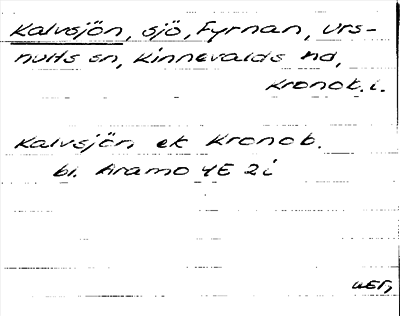 Kalvsjön, sjö, Fyrnan, Urs-
hults sn, Kinnevalds hd,
Kronob.l.
Kalvsjön ek Kronob.
bl. Aramo 4E 2i